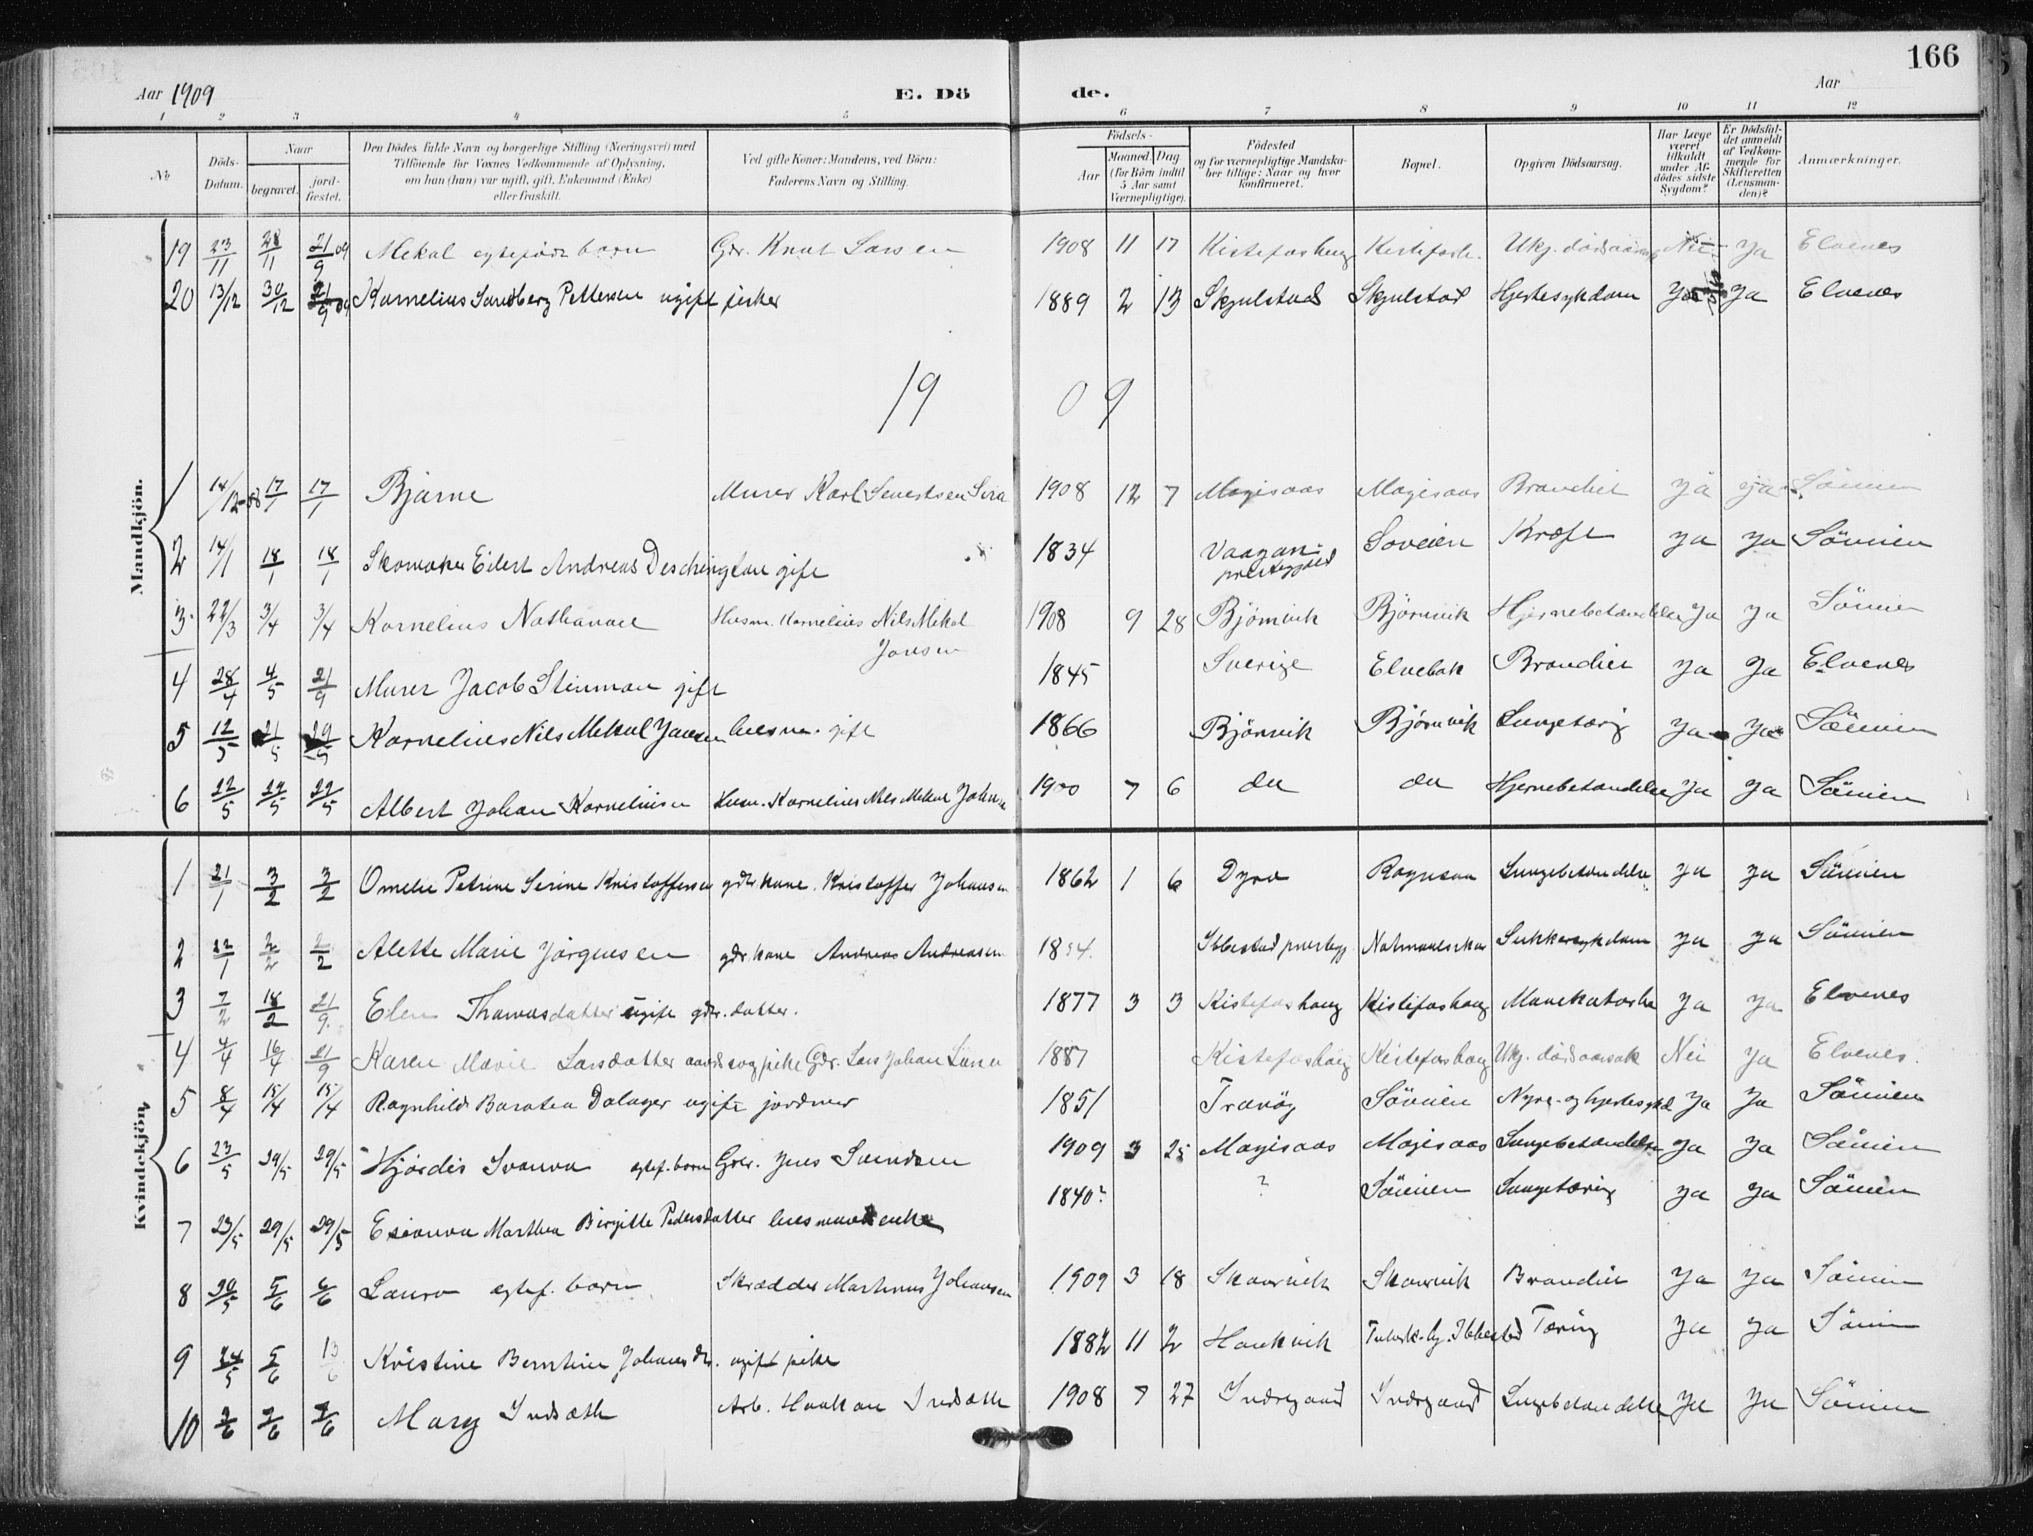 166
Aar 1909
E. Dö
de.
Aar
1 2 3 4 5 6 7 8 9 10 11 12
No
Döds-Datum.
Naar
begravet.
jord-fæstet.
Den Dödes fulde Navn og borgerlige Stilling (Næringsvei) med
Tilföiende for Voxnes Vedkommende af Oplysning,
om han (hun) var ugift, gift, Enkemand (Enke)
eller fraskilt.
Ved gifte Koner: Mandens, ved Börn:
Faderens Navn og Stilling.
Födsels-
Aar
Maaned. Dag
(for Börn indtil
5 Aar samt
Værnepligtige).
Födested
og for værnepligtige Mandska-
ber tillige: Naar og hvor
konfirmeret.
Bopæl.
Opgiven Dödsaarsag.
Har Læge
været
tilkaldt
under Af-
dödes sidste
Sygdom?
Er Dödsfal-
det anmeldt
af Vedkom-
mende for
Skifteretten
(Lensman-
den)?
Anmærkninger.
Mandkjön.
19 23/11 28/11 21/9 09 Mekal egtefödt barn Gdr. Knut Larsen 1908 11 17 Kistefoshaug Kistefosh. Ukj. dödsaarsag Nei ja Elvenes
20 13/12 30/12 21/9 09 Kornelius Sandberg Pettersen ugift fisker 1889 2 13 Skjulstad Skjulstad Hjertesykdom Ja Elvenes
1909
1 14/12-08 17/1 17/1 Bjarne Murer Karl Severtsen 1908 12 7 Magisaas Magisaas Brandier ja ja Sövien
2 14/1 18/1 18/1 Skomaker Eilert Andreas Deschington gift 1834 Vaagan prestegjeld Soveien Kræft ja ja Sövien
3 22/3 3/4 3/4 Kornelius Nathanael Husm. Kornelius Nils Mekal
Jonsen 1908 9 28 Björnvik Björnvik Hjernebetændelse Ja ja Sövien
4 28/4 4/5 21/9 Murer Jacob Stenman gift 1845 Sverige Elvebak Brandier ja Ja Elvenes
5 12/5 21/5 29/5 Kornelius Nils Mekal Jonsen husm. gift 1866 Björnvik Björnvik Lungetæring Ja Ja Sövien
6 22/5 29/5 29/5 Albert Johan Korneliusen Husm. Kornelius Nils Mekal Johnsen 1900 7 6 do do Hjernebetændelse Ja Ja Sövien
Kvindekjön,
1 21/1 3/2 3/2 Omelie Petrine Serine Kristoffersen gdr. kone. Kristoffer Johansen 1862 1 6 Dyrö Lungebetændelse ja ja Sövien
2 22/1 2/2 2/2 Alette Marie Jörgensen gdr. kone Andreas Andreasen Ibbestad prestegj Sukkersykdom ja ja Sövien
3 7/2 18/2 21/9 Elen Thomasdatter ugift gdr. datter. 1877 3 3 Kistefoshaug Kistefoshaug Mavekatarh Ja ja Elvenes
4 4/4 16/4 21/9 Karen Marie Larsdatter aandssvag pike Gdr. Lars Johan Larsen 1887 Kistefoshaug Kistefoshaug Ukj. dödsaarsak Nei ja Elvenes.
5 8/4 15/4 15/4 Ragnhild Dalager ugift jordmor 1851 Tranöy Sövien Nyre- og hjertesykd Ja Ja Sövien
6 23/5 29/5 29/5 Hjördis Ivanna egtef. barn Gdr. Jens Svendsen 1909 3 25 Magisaas Magisaas Lungebetændelse Ja Ja Sövien
7 23/5 29/5 29/5 Marthea Birgitte Pedersdatter husmandsenke 1840? ? Sövien Lungetæring ja ja Sövien
8 5/6 6/6 Laura egtef. barn Skrædder Martinus Johansen 1909 3 18 Skaarvik Skaarvik Brandier Ja ja Sövien
9 24/5 5/6 13/6 Kristine Berntine Johansdr. ugift pike 1882 11 2 Haukvik Ibbestad Tæring ja Ja Sövien
10 2/6 7/6 7/6 Mary Indsæth Arb. Haakon Indsæth 1908 7 27 Indregaard Indregaard Lungebetændelse Ja Ja Sövien